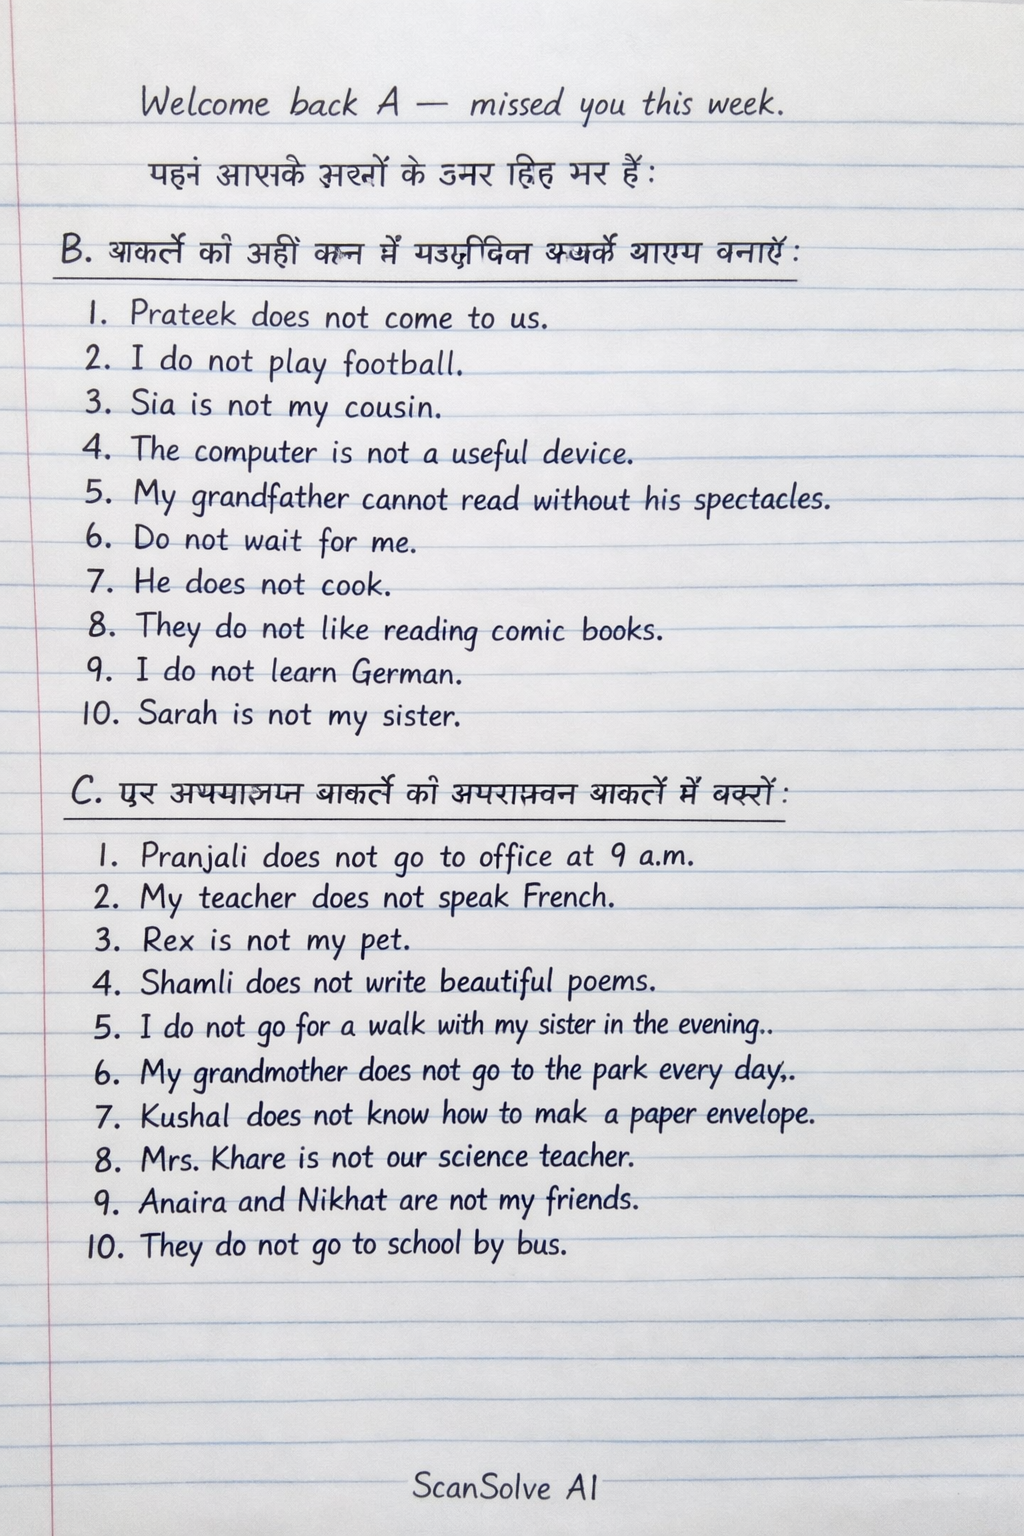 Welcome back A — missed you this week.
के हैं:
B. को में वनाएँ:
1. Prateek does not come to us.
2. I do not play football.
3. Sia is not my cousin.
4. The computer is not a useful device.
5. My grandfather cannot read without his spectacles.
6. Do not wait for me.
7. He does not cook.
8. They do not like reading comic books.
9. I do not learn German.
10. Sarah is not my sister.
C. को में
1. Pranjali does not go to office at 9 a.m.
2. My teacher does not speak French.
3. Rex is not my pet.
4. Shamli does not write beautiful poems.
5. I do not go for a walk with my sister in the evening..
6. My grandmother does not go to the park every day,.
7. Kushal does not know how to mak a paper envelope.
8. Mrs. Khare is not our science teacher.
9. Anaira and Nikhat are not my friends.
10. They do not go to school by bus.
ScanSolve AI